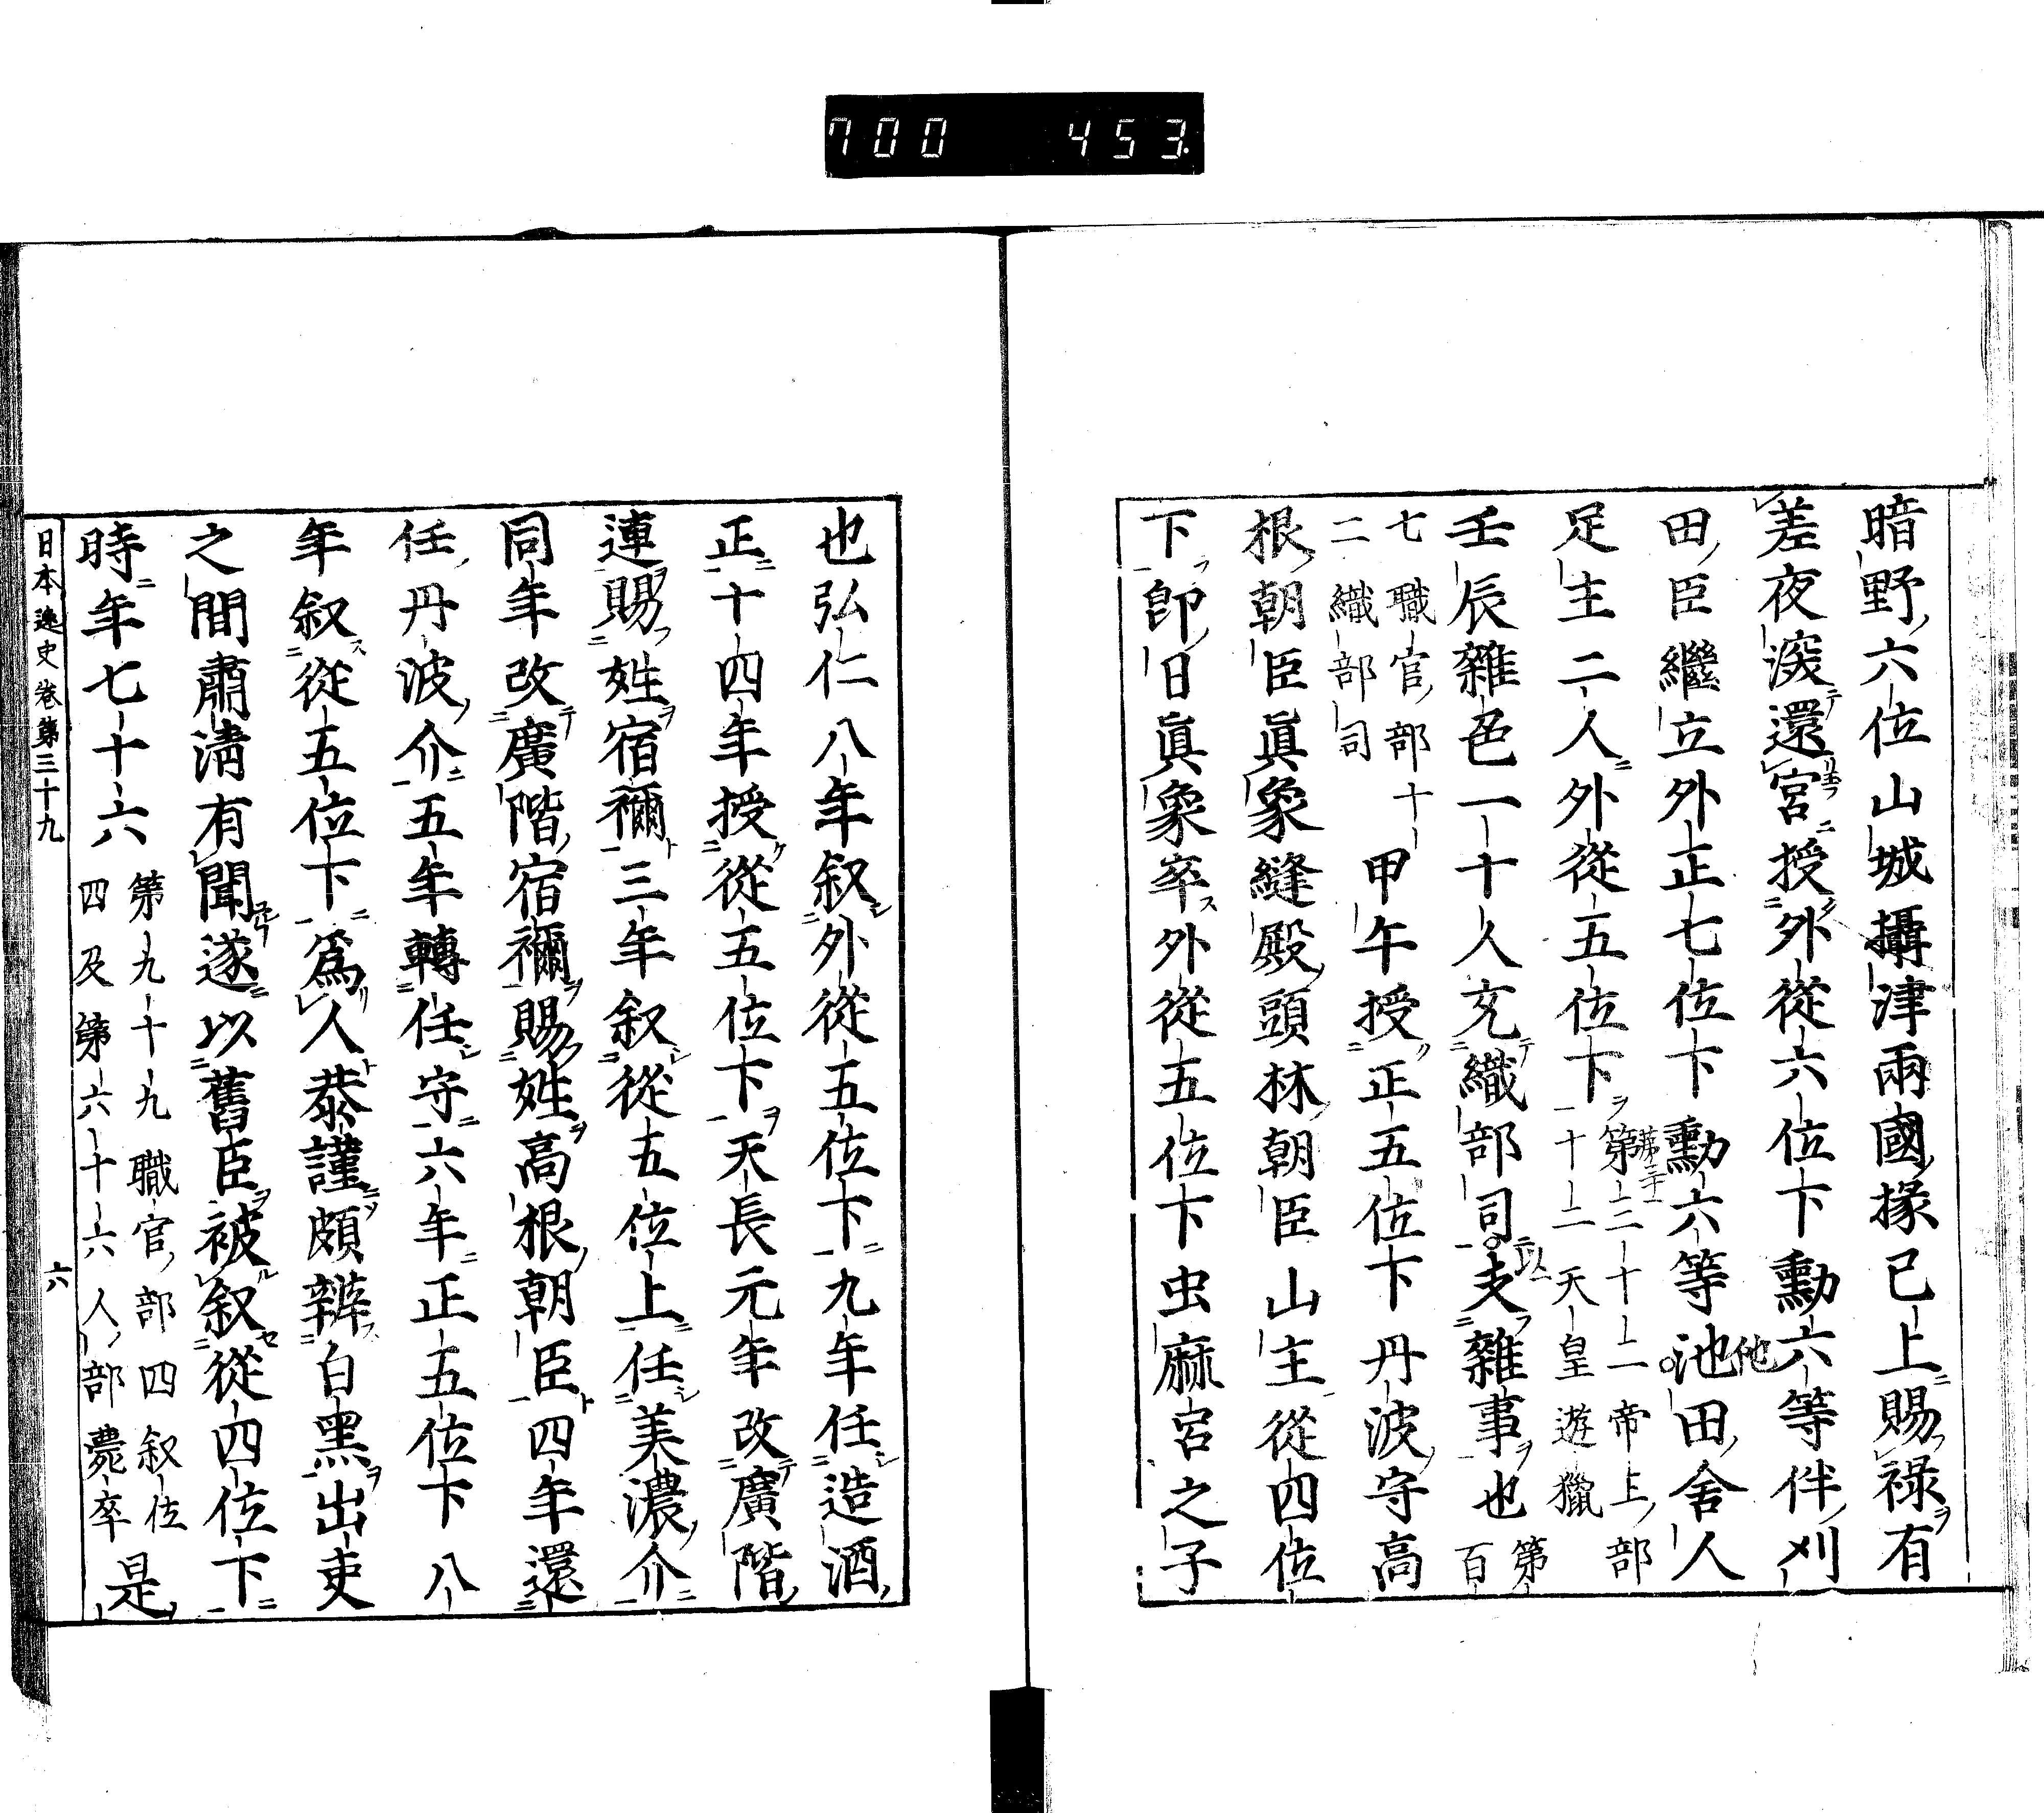 700 453
暗野六位山城攝津兩國掾已上賜祿有
差夜深還宮授外從六位下勳六等伴刈
田臣繼立外正七位下勳六等池田舍人
他
足主二人外從五位下
第三十二帝上部
十二天皇遊獵
壬辰雜色一十人充織部司支雜事也
第
百
七職官部十
二織部司
甲午授正五位下丹波守高
根朝臣眞象縫殿頭林朝臣山主從四位
下卽日眞象卒外從五位下虫麻呂之子
也弘仁八年叙外從五位下九年任造酒
正十四年授從五位下天長元年改廣階
連賜姓宿禰三年叙從五位上任美濃介
同年改廣階宿禰賜姓高根朝臣四年還
任丹波介五年轉任守六年正五位下八
年叙從五位下爲人恭謹頗辨白黑出吏
之間肅淸有聞遂以舊臣被叙從四位下
時年七十六
第九十九職官部四叙位
四及第六十六人部薨卒
是
日本逸史卷第三十九 六